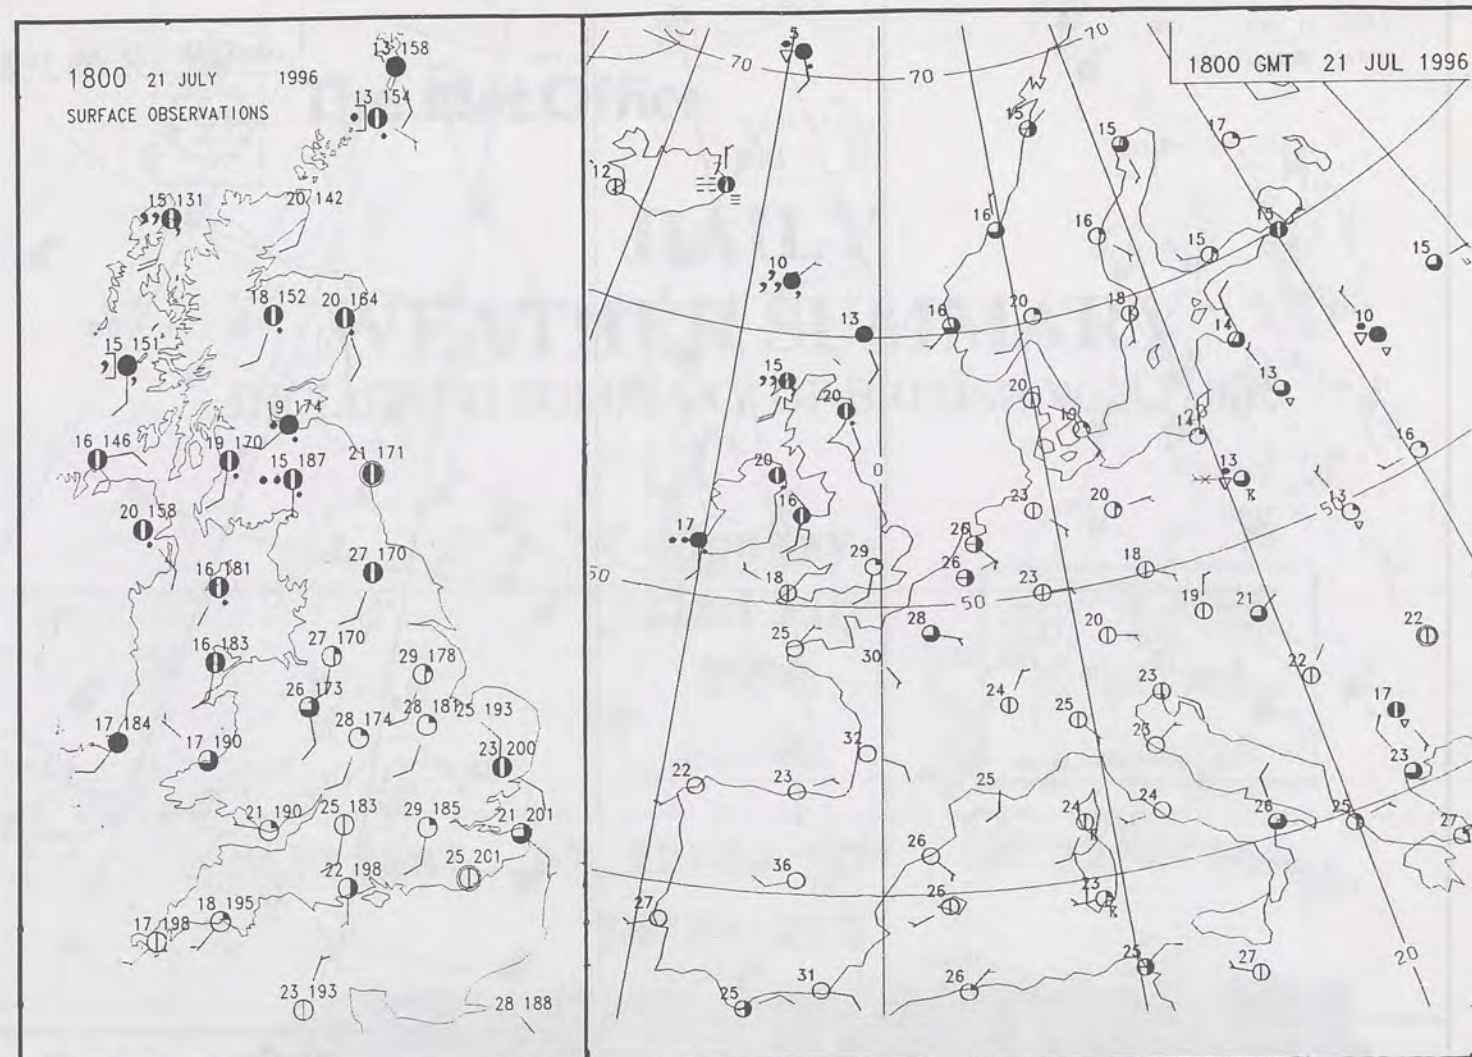 1800 21 JULY 1996
SURFACE OBSERVATIONS
13 158
13 154
15 131
20 142
18 152
20 164
15 151
19 174
16 146
19 170
15 187
21 171
20 158
16 181
27 170
16 183
27 170
29 178
26 173
28 181
25 193
28 174
17 184
17 190
23 200
21 190
25 183
29 185
21 201
25 201
22 198
18 195
17 198
23 193
28 188
1800 GMT 21 JUL 1996
5
70
70
70
15
15
17
12
7
16
16
15
15
15
10
13
16
20
18
14
10
15
20
20
13
14
16
20
16
23
20
13
13
50
17
29
26
26
18
50
23
18
19
21
22
25
28
20
30
24
25
23
22
17
32
23
22
23
25
24
24
26
25
23
27
26
36
27
26
23
25
27
20
31
25
26
0